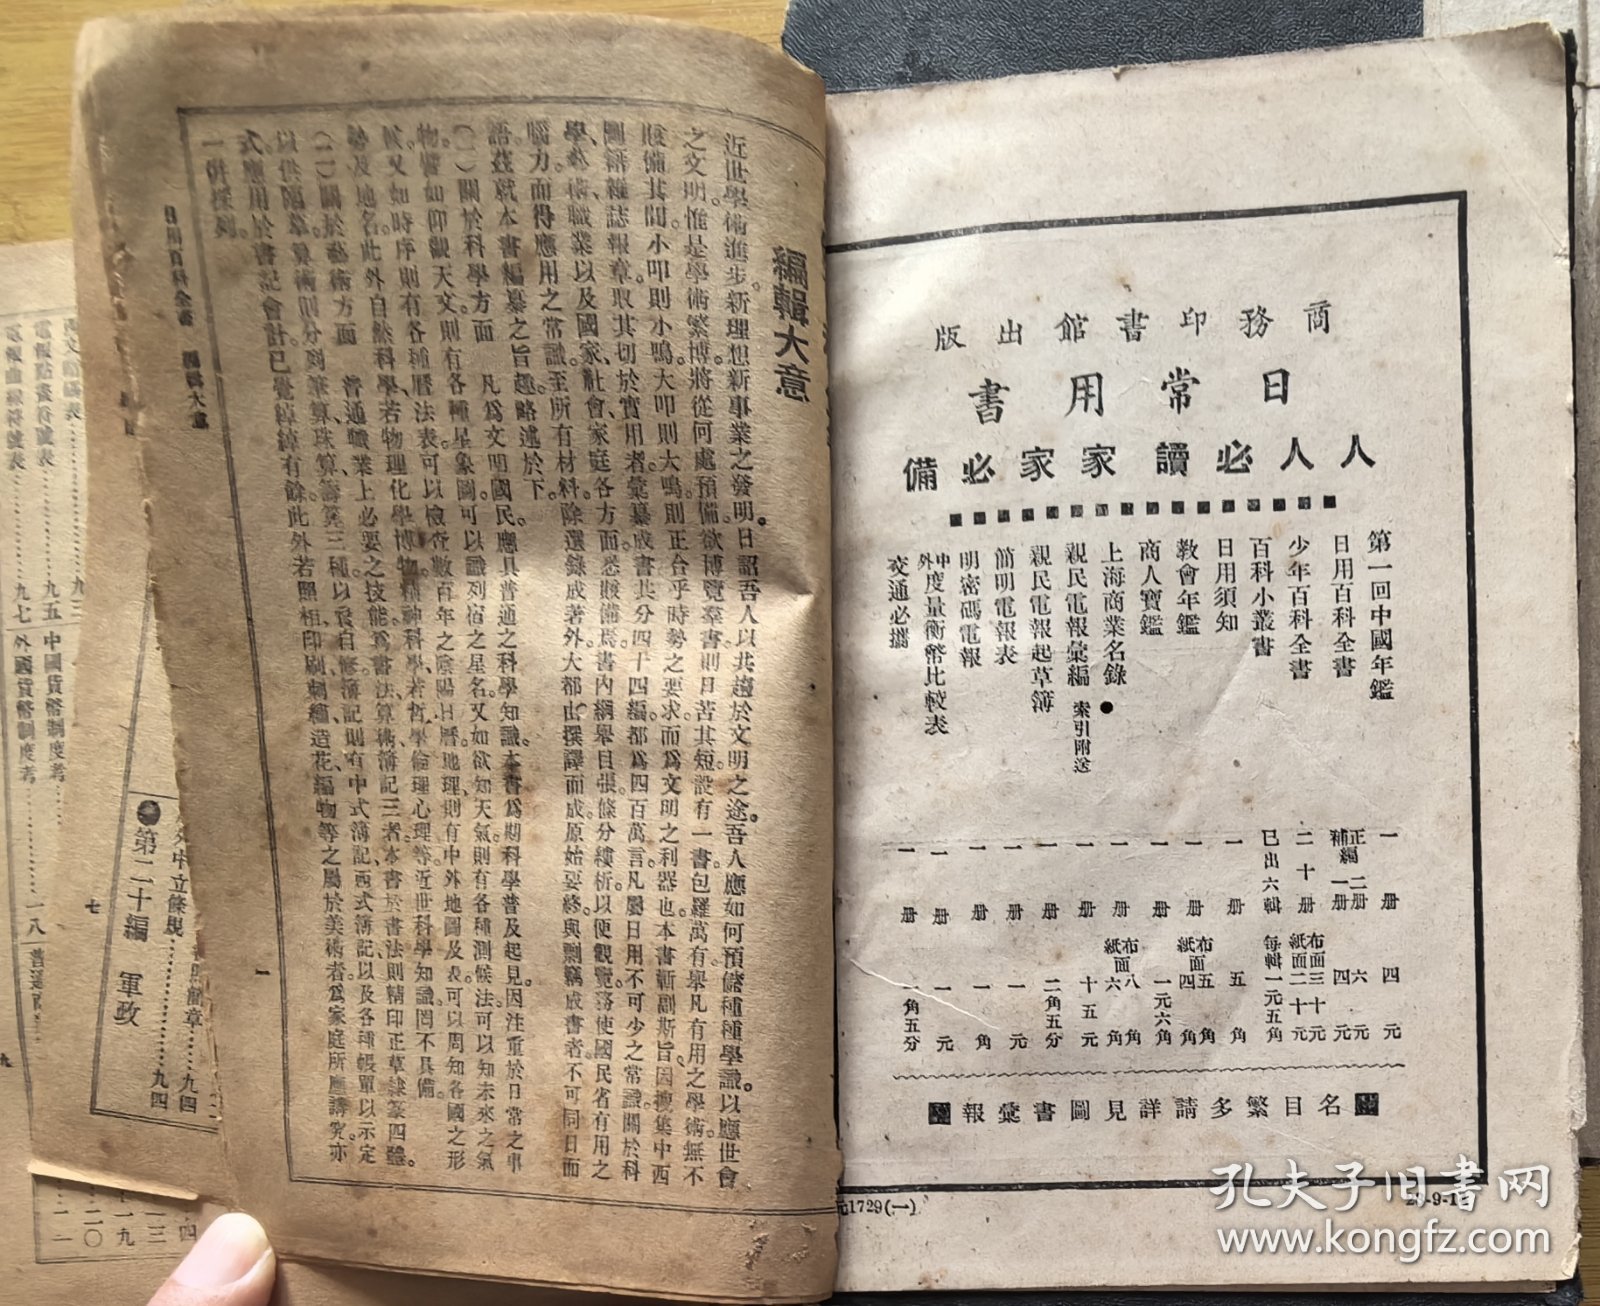 商務印書館出版
日常用書
人人必讀家家必備
第一回中國年鑑 一册 四元
日用百科全書 正編二册 六元 補編一册 四元
少年百科全書 二十册 布面三十元 紙面二十元
百科小叢書 已出六輯 每輯一元五角
日用須知 一册 五角
教會年鑑 一册 布面五角 紙面四角
商人寶鑑 一册 一元六角
上海商業名錄 一册 布面八角 紙面六角
親民電報彙編 索引附送 一册 十五元
親民電報起草簿 一册 二角五分
簡明電報表 一册 一元
明密碼電報 一册 一角
中外度量衡幣比較表 一册 一元
交通必攜 一册 一角五分
名目繁多請詳見圖書彙報
元1729(一)
編輯大意
近世學術進步。新理想新事業之發明。日詔吾人以共趨於文明之途。吾人應如何預備種種學識。以應世會
之文明。惟是學術繁博。將從何處預備。欲博覽羣書。則日苦其短。設有一書包羅萬有。舉凡有用之學術。無不
賅備其間。小叩則小鳴。大叩則大鳴。則正合乎時勢之要求。而爲文明之利器也。本書斬副斯旨。因搜集中西
圖籍雜誌報章。取其切於實用者。彙纂成書。共分四十四編。都爲四百萬言。凡屬日用不可少之常識。關於科
學、藝術、職業以及國家、社會、家庭各方面。悉賅備焉。書內綱舉目張。條分縷析。以便觀覽。務使國民省有用之
腦力。而得應用之常識。至所有材料。除選錄成著外。大都由撰譯而成。原始要終。與剽竊成書者。不可同日而
語。茲就本書編纂之旨趣。略述於下。
(一)關於科學方面 凡爲文明國民。應具普通之科學知識。本書爲期科學普及起見。因注重於日常之事
物。譬如仰觀天文。則有各種星象圖。可以識列宿之星名。又如欲知天氣。則有各種測候法。可以知未來之氣
候。又如時序。則有各種曆法表。可以檢查數百年之陰陽日曆。地理則有中外地圖及表。可以周知各國之形
勢及地名。此外自然科學。若物理化學博物。精神科學。若哲學倫理心理等。近世科學知識。罔不具備。
(二)關於藝術方面 普通職業上必要之技能。爲書法算術簿記三者。本書於書法則精印正草隸篆四體。
以供臨摹。算術則分列筆算、珠算、籌算三種。以資自修。簿記則有中式簿記、西式簿記、以及各種帳單。以示定
式。應用於書記會計。已覺綽綽有餘。此外若照相、印刷、刺繡、造花、編物等之屬於美術者。爲家庭所應講究。亦
一併採列。
日用百科全書 編輯大意
一
第二十編 軍政……九四
七
中國貨幣制度考
外國貨幣制度考……一八